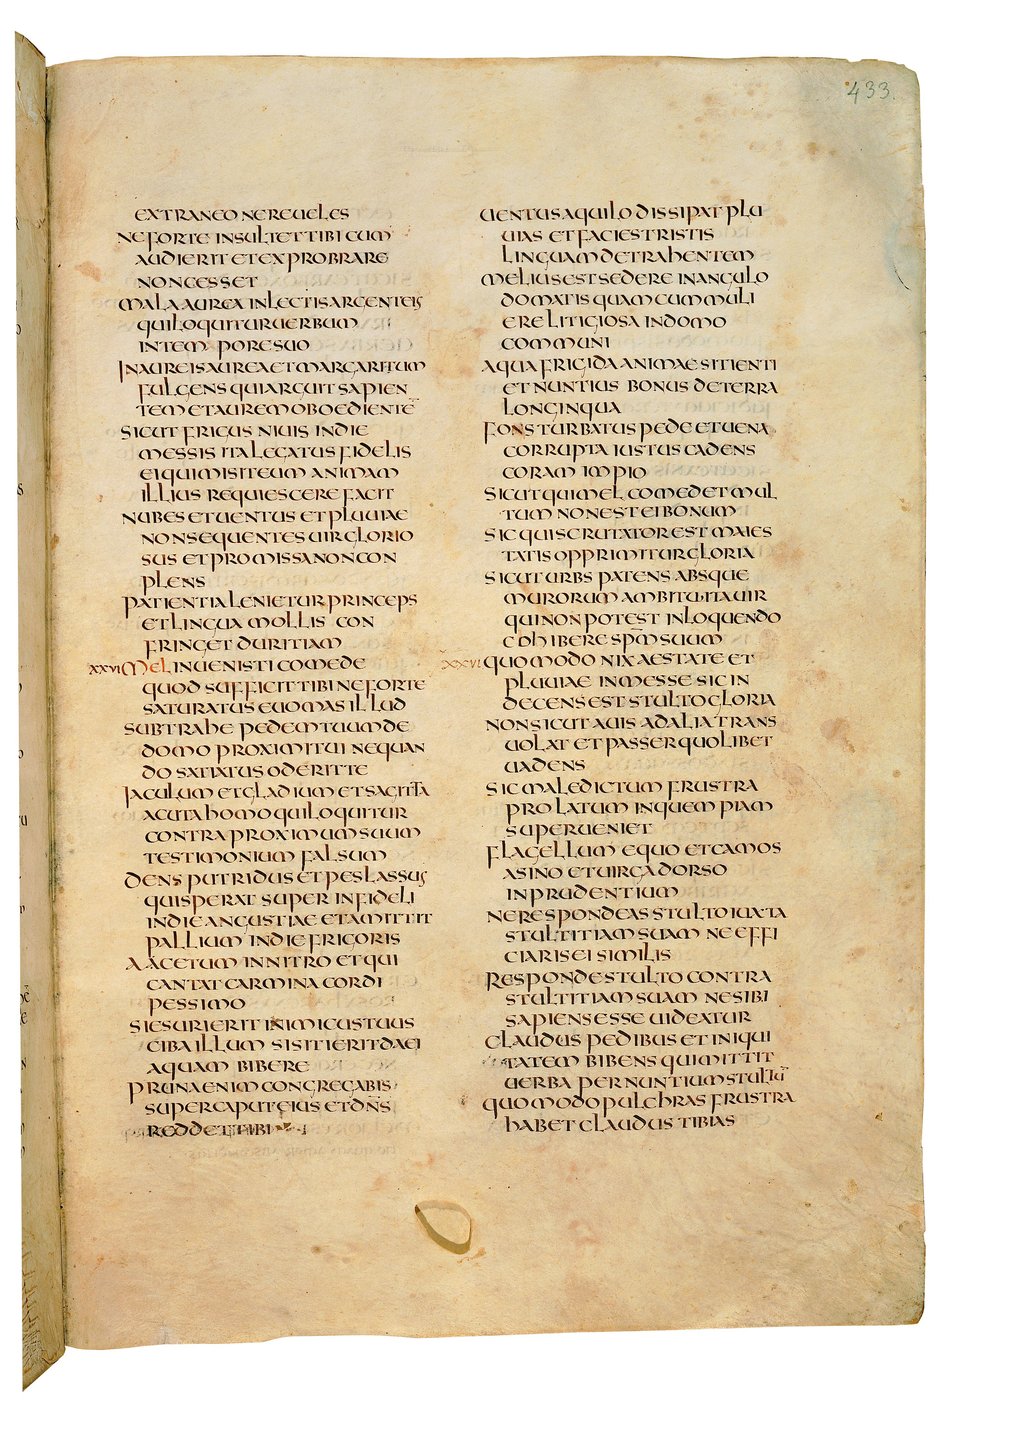 433
EXTRANEO NEREUELES
NEFORTE INSULTET TIBI CUM
AUDIERIT ET EXPROBRARE
NON CESSET
MALA AUREA IN LECTIS ARGENTEIS
QUI LOQUITUR UERBUM
IN TEMPORE SUO
INAUREIS AUREA ET MARGARITUM
FULGENS QUI ARGUIT SAPIEN
TEM ET AUREM OBOEDIENTĒ
SICUT FRIGUS NIUIS IN DIE
MESSIS ITA LEGATUS FIDELIS
EI QUI MISIT EUM ANIMAM
ILLIUS REQUIESCERE FACIT
NUBES ET UENTUS ET PLUUIAE
NON SEQUENTES UIR GLORIO
SUS ET PROMISSA NON CON
PLENS
PATIENTIA LENIETUR PRINCEPS
ET LINGUA MOLLIS CON
FRINGET DURITIAM
XXVI MEL INUENISTI COMEDE
QUOD SUFFICIT TIBI NE FORTE
SATURATUS EUOMAS ILLUD
SUBTRAHE PEDEM TUUM DE
DOMO PROXIMI TUI NEQUAN
DO SATIATUS ODERIT TE
IACULUM ET GLADIUM ET SAGITTA
ACUTA HOMO QUI LOQUITUR
CONTRA PROXIMUM SUUM
TESTIMONIUM FALSUM
DENS PUTRIDUS ET PES LASSUS
QUI SPERAT SUPER INFIDELI
IN DIE ANGUSTIAE ET AMITTIT
PALLIUM IN DIE FRIGORIS
ACETUM IN NITRO ET QUI
CANTAT CARMINA CORDI
PESSIMO
SI ESURIERIT INIMICUS TUUS
CIBA ILLUM SI SITIERIT DA EI
AQUAM BIBERE
PRUNA ENIM CONGREGABIS
SUPER CAPUT EIUS ET DN̄S
REDDET TIBI
UENTUS AQUILO DISSIPAT PLU
UIAS ET FACIES TRISTIS
LINGUAM DETRAHENTEM
MELIUS EST SEDERE IN ANGULO
DOMATIS QUAM CUM MULI
ERE LITIGIOSA IN DOMO
COMMUNI
AQUA FRIGIDA ANIMAE SITIENTI
ET NUNTIUS BONUS DE TERRA
LONGINQUA
FONS TURBATUS PEDE ET UENA
CORRUPTA IUSTUS CADENS
CORAM IMPIO
SICUT QUI MEL COMEDET MUL
TUM NON EST EI BONUM
SIC QUI SCRUTATOR EST MAIES
TATIS OPPRIMITUR GLORIA
SICUT URBS PATENS ABSQUE
MURORUM AMBITU ITA UIR
QUI NON POTEST IN LOQUENDO
COHIBERE SPM̄ SUUM
XXVI QUOMODO NIX AESTATE ET
PLUUIAE IN MESSE SIC IN
DECENS EST STULTO GLORIA
NON SICUT AUIS AD ALIA TRANS
UOLAT ET PASSER QUOLIBET
UADENS
SIC MALEDICTUM FRUSTRA
PROLATUM IN QUEMPIAM
SUPERUENIET
FLAGELLUM EQUO ET CAMOS
ASINO ET UIRGA DORSO
INPRUDENTIUM
NE RESPONDEAS STULTO IUXTA
STULTITIAM SUAM NE EFFI
CIARIS EI SIMILIS
RESPONDE STULTO CONTRA
STULTITIAM SUAM NE SIBI
SAPIENS ESSE UIDEATUR
CLAUDUS PEDIBUS ET INIQUI
TATEM BIBENS QUI MITTIT
UERBA PER NUNTIUM STULTŪ
QUOMODO PULCHRAS FRUSTRA
HABET CLAUDUS TIBIAS